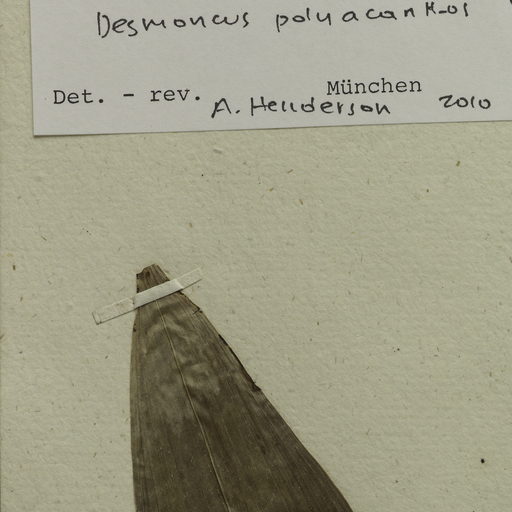 Desmoncus polyacanthos
Det. - rev. München
A. Henderson 2010